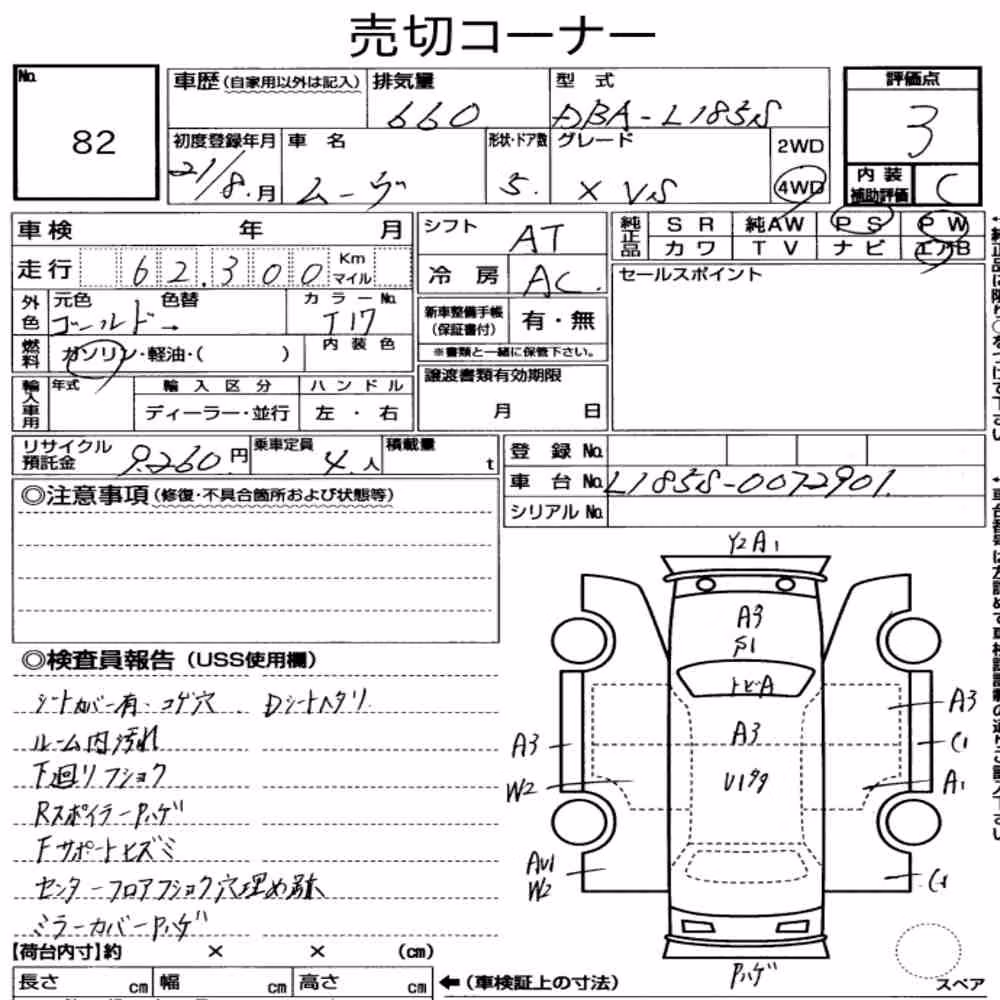 売切コーナー
No.
82
車歴 (自家用以外は記入)
排気量
660
型 式
DBA-L185S
評価点
3
初度登録年月
21/8.月
車 名
ムーヴ
形状・ドア数
5.
グレード
X VS
2WD
4WD
内 装
補助評価
C
車検 年 月
走行 62,300 Km マイル
外色
元色
ゴールド→
色替
カラーNo.
T17
燃料
ガソリン・軽油・( )
内 装 色
輸入車用
年式
輸 入 区 分
ディーラー・並行
ハ ン ド ル
左 ・ 右
シフト
AT
冷 房
AC.
新車整備手帳
(保証書付)
有・無
※書類と一緒に保管下さい。
譲渡書類有効期限
月 日
純正品
S R 純AW P S P W
カ ワ T V ナ ビ エアB
セールスポイント
リサイクル
預託金
9,260 円
乗車定員
4 人
積載量
t
登 録 No.
車 台 No. L185S-0072901.
シリアル No.
◎注意事項 (修復・不具合箇所および状態等)
◎検査員報告 (USS使用欄)
シートカバー有・コゲ穴 Dシートヘタリ
ルーム内汚れ
下廻りフショク
Rスポイラーハゲ
Fサポートヒズミ
センターフロアフショク穴埋め跡
ミラーカバーハゲ
Y2 A1
A3
S1
トビA
A3
A3
A3
C1
W2
A1
AU1
W2
C1
ハゲ
スペア
【荷台内寸】約 × × (cm)
長さ cm 幅 cm 高さ cm
←(車検証上の寸法)